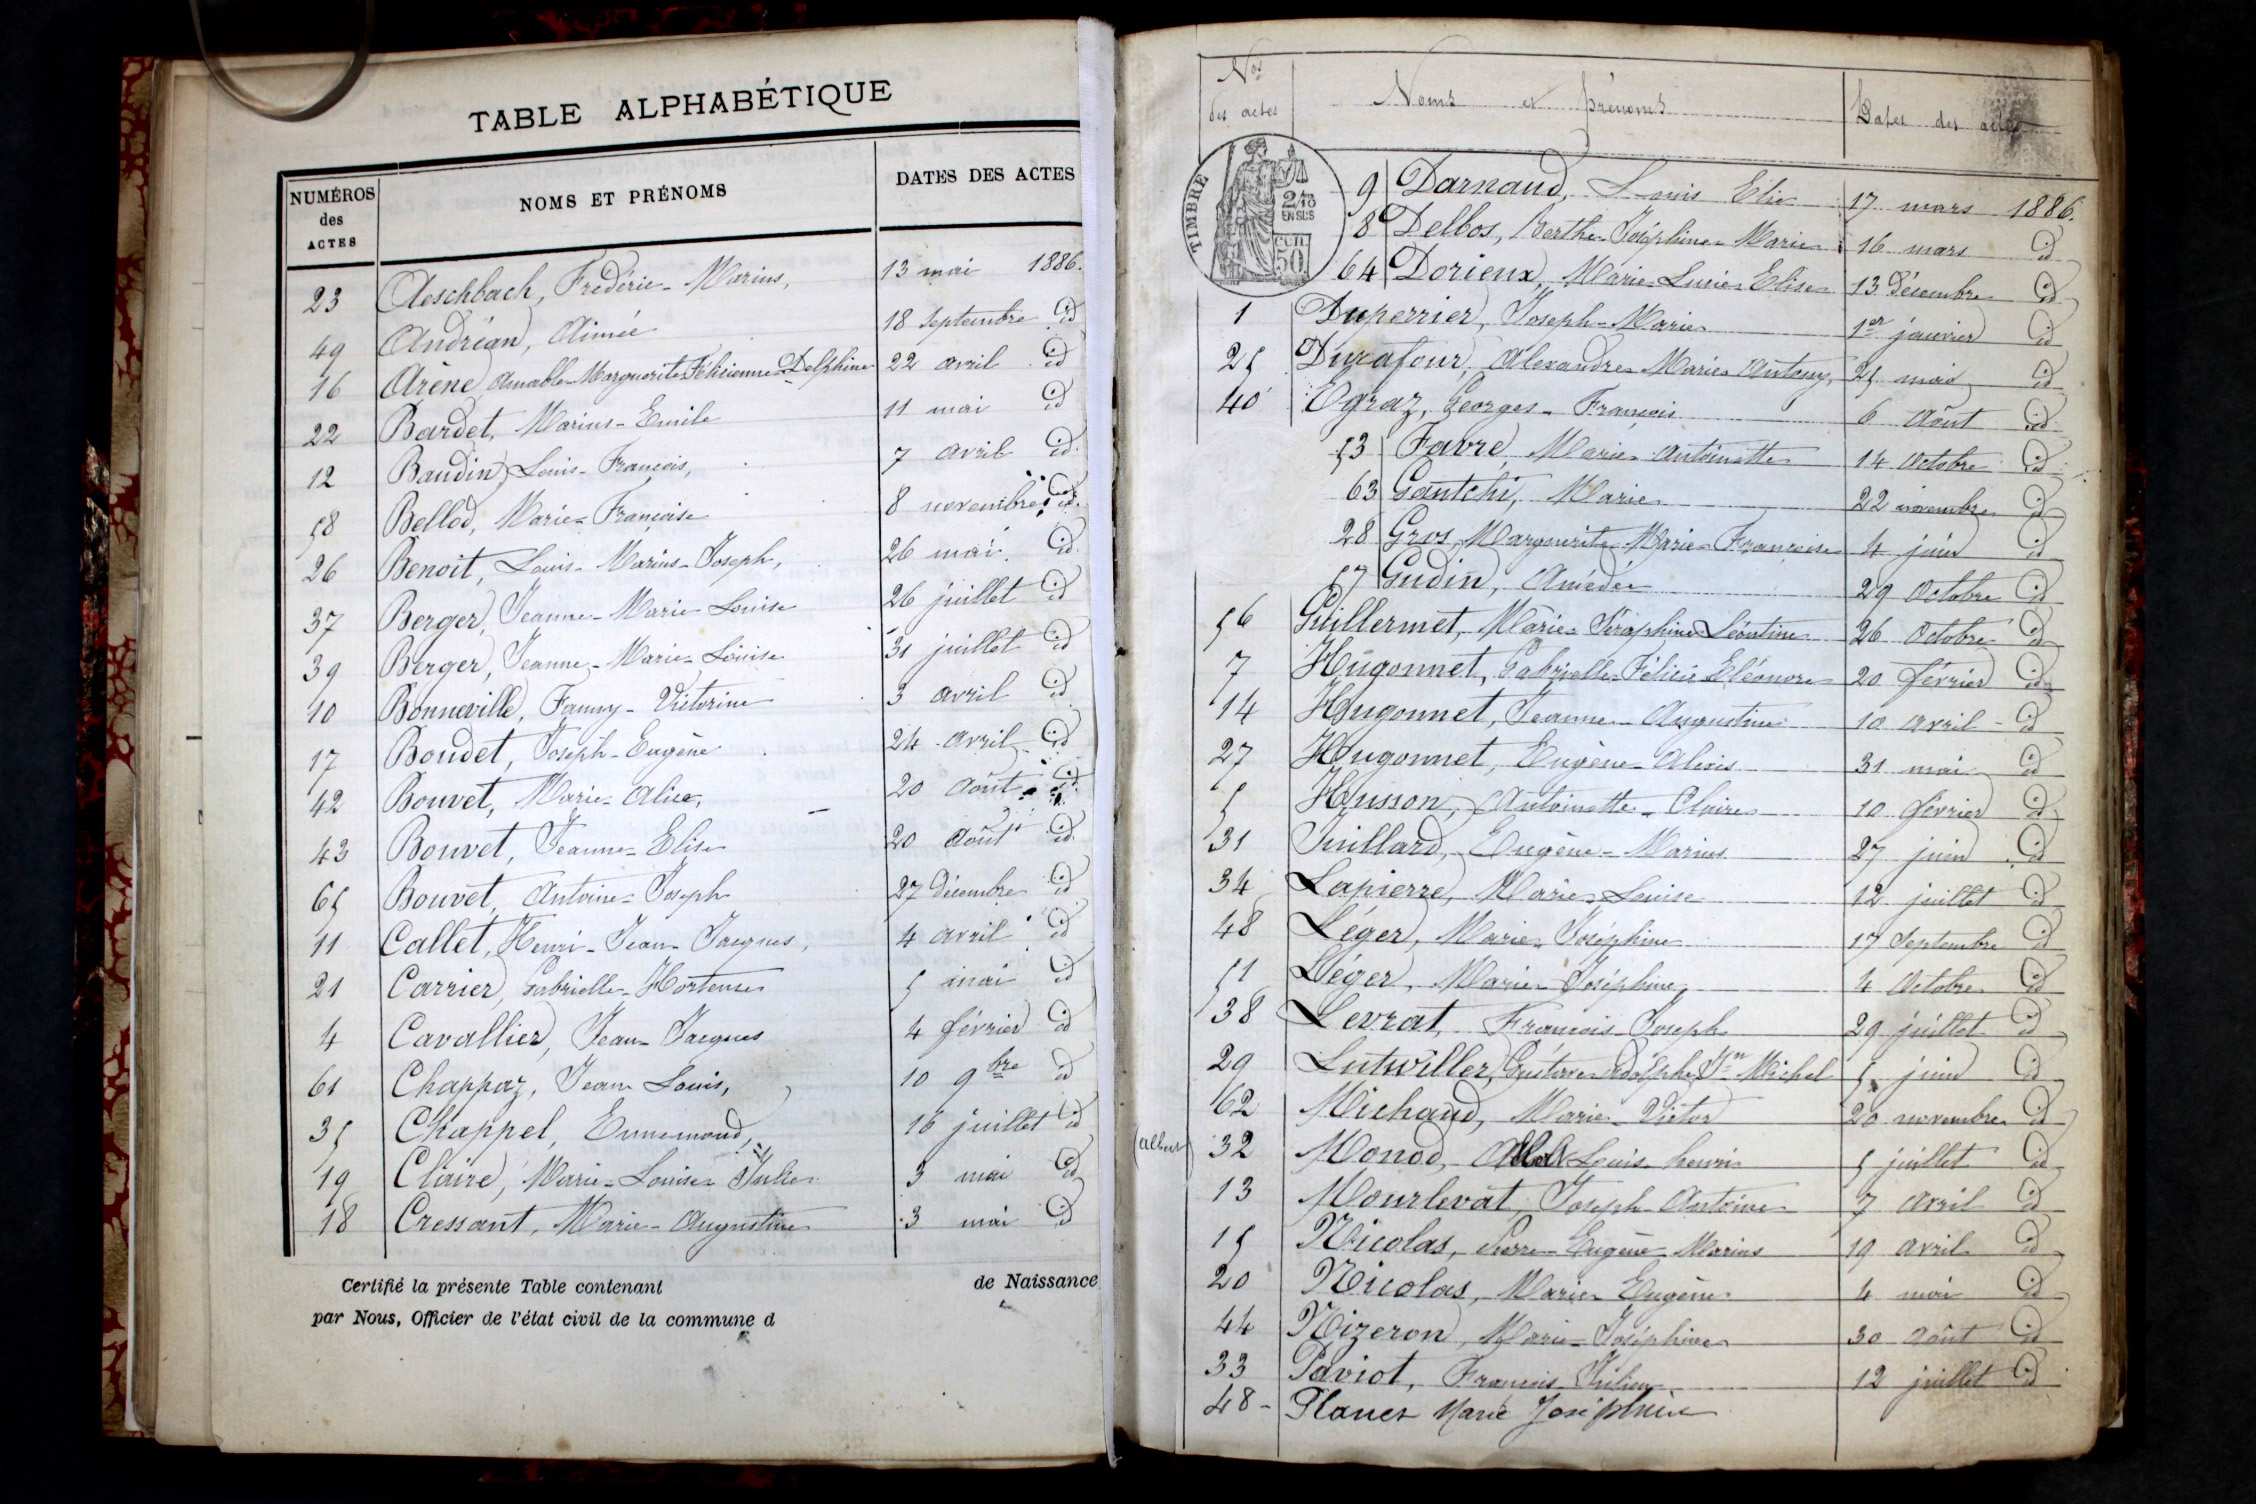 TABLE ALPHABÉTIQUE
NUMÉROS des ACTES NOMS ET PRÉNOMS DATES DES ACTES
23 Aeschbach, Frédéric-Marius, 13 mai 1886.
49 Andréan, Aimée 18 septembre id
16 Arène, Amable-Marguerite-Félicienne-Delphine 22 avril id
22 Bardet, Marius-Emile 11 mai id
12 Baudin, Louis-François, 7 avril id
58 Bellod, Marie-Françoise 8 novembre id.
26 Benoit, Louis-Marius-Joseph, 26 mai id
37 Berger, Jeanne-Marie-Louise 26 juillet id
39 Berger, Jeanne-Marie-Louise 31 juillet id
10 Bonneville, Fanny-Victorine 3 avril id
17 Boudet, Joseph-Eugène 24 avril id
42 Bouvet, Marie-Alice, 20 Août id
43 Bouvet, Jeanne-Elise 20 août id
65 Bouvet, Antoine-Joseph 27 décembre id
11 Callet, Henri-Jean-Jacques, 4 avril id
21 Carrier, Gabrielle-Hortense 5 mai id
4 Cavallier, Jean-Jacques 4 février id
61 Chappaz, Jean Louis, 10 9bre id
35 Chappel, Ennemond, 16 juillet id
19 Claire, Marie-Louise-Julie 3 mai id
18 Cressant, Marie-Augustine 3 mai id
Certifié la présente Table contenant de Naissance
par Nous, Officier de l'état civil de la commune d
Nos des actes Noms et prénoms Dates des actes
TIMBRE
2/10 EN SUS
50
9 Darnaud, Louis Elie 17 mars 1886.
8 Delbos, Berthe-Joséphine-Marie 16 mars id
64 Dorieux, Marie-Lucie-Elise 13 Décembre id
1 Duperrier, Joseph-Marie 1er janvier id
25 Durafour, Alexandre-Marie-Antony, 25 mai id
40 Egraz, Georges-François 6 Août id
53 Favre, Marie-Antoinette 14 Octobre id
63 Gantchi, Marie 22 novembre id
28 Gros, Marguerite-Marie-Françoise 4 juin id
57 Gudin, Amédée 29 Octobre id
56 Guillermet, Marie-Séraphine-Léontine 26 Octobre id
7 Hugonnet, Gabrielle-Félicie-Eléonore 20 février id
14 Hugonnet, Jeanne-Augustine 10 avril id
27 Hugonnet, Eugène-Alexis 31 mai id
5 Husson, Antoinette-Claire 10 février id
31 Juillard, Eugène-Marius 27 juin id
34 Lapierre, Marie-Louise 12 juillet id
48 Léger, Marie-Joséphine 17 septembre id
51 Léger, Marie-Joséphine 4 Octobre id
38 Levrat, François-Joseph 29 juillet id
29 Lutwiller, Gustave-Adolphe-Jn-Michel 5 juin id
62 Michaud, Marie-Victor 20 novembre id
(albert) 32 Monod, Louis-henri 5 juillet id
13 Mourlevat, Joseph-Antoine 7 avril id
15 Nicolas, Pierre-Eugène-Marius 19 avril id
20 Nicolas, Marie-Eugène 4 mai id
44 Nizeron, Marie-Joséphine 30 août id
33 Paviot, François-Julien 12 juillet id
48 - Planet Marie Joséphine